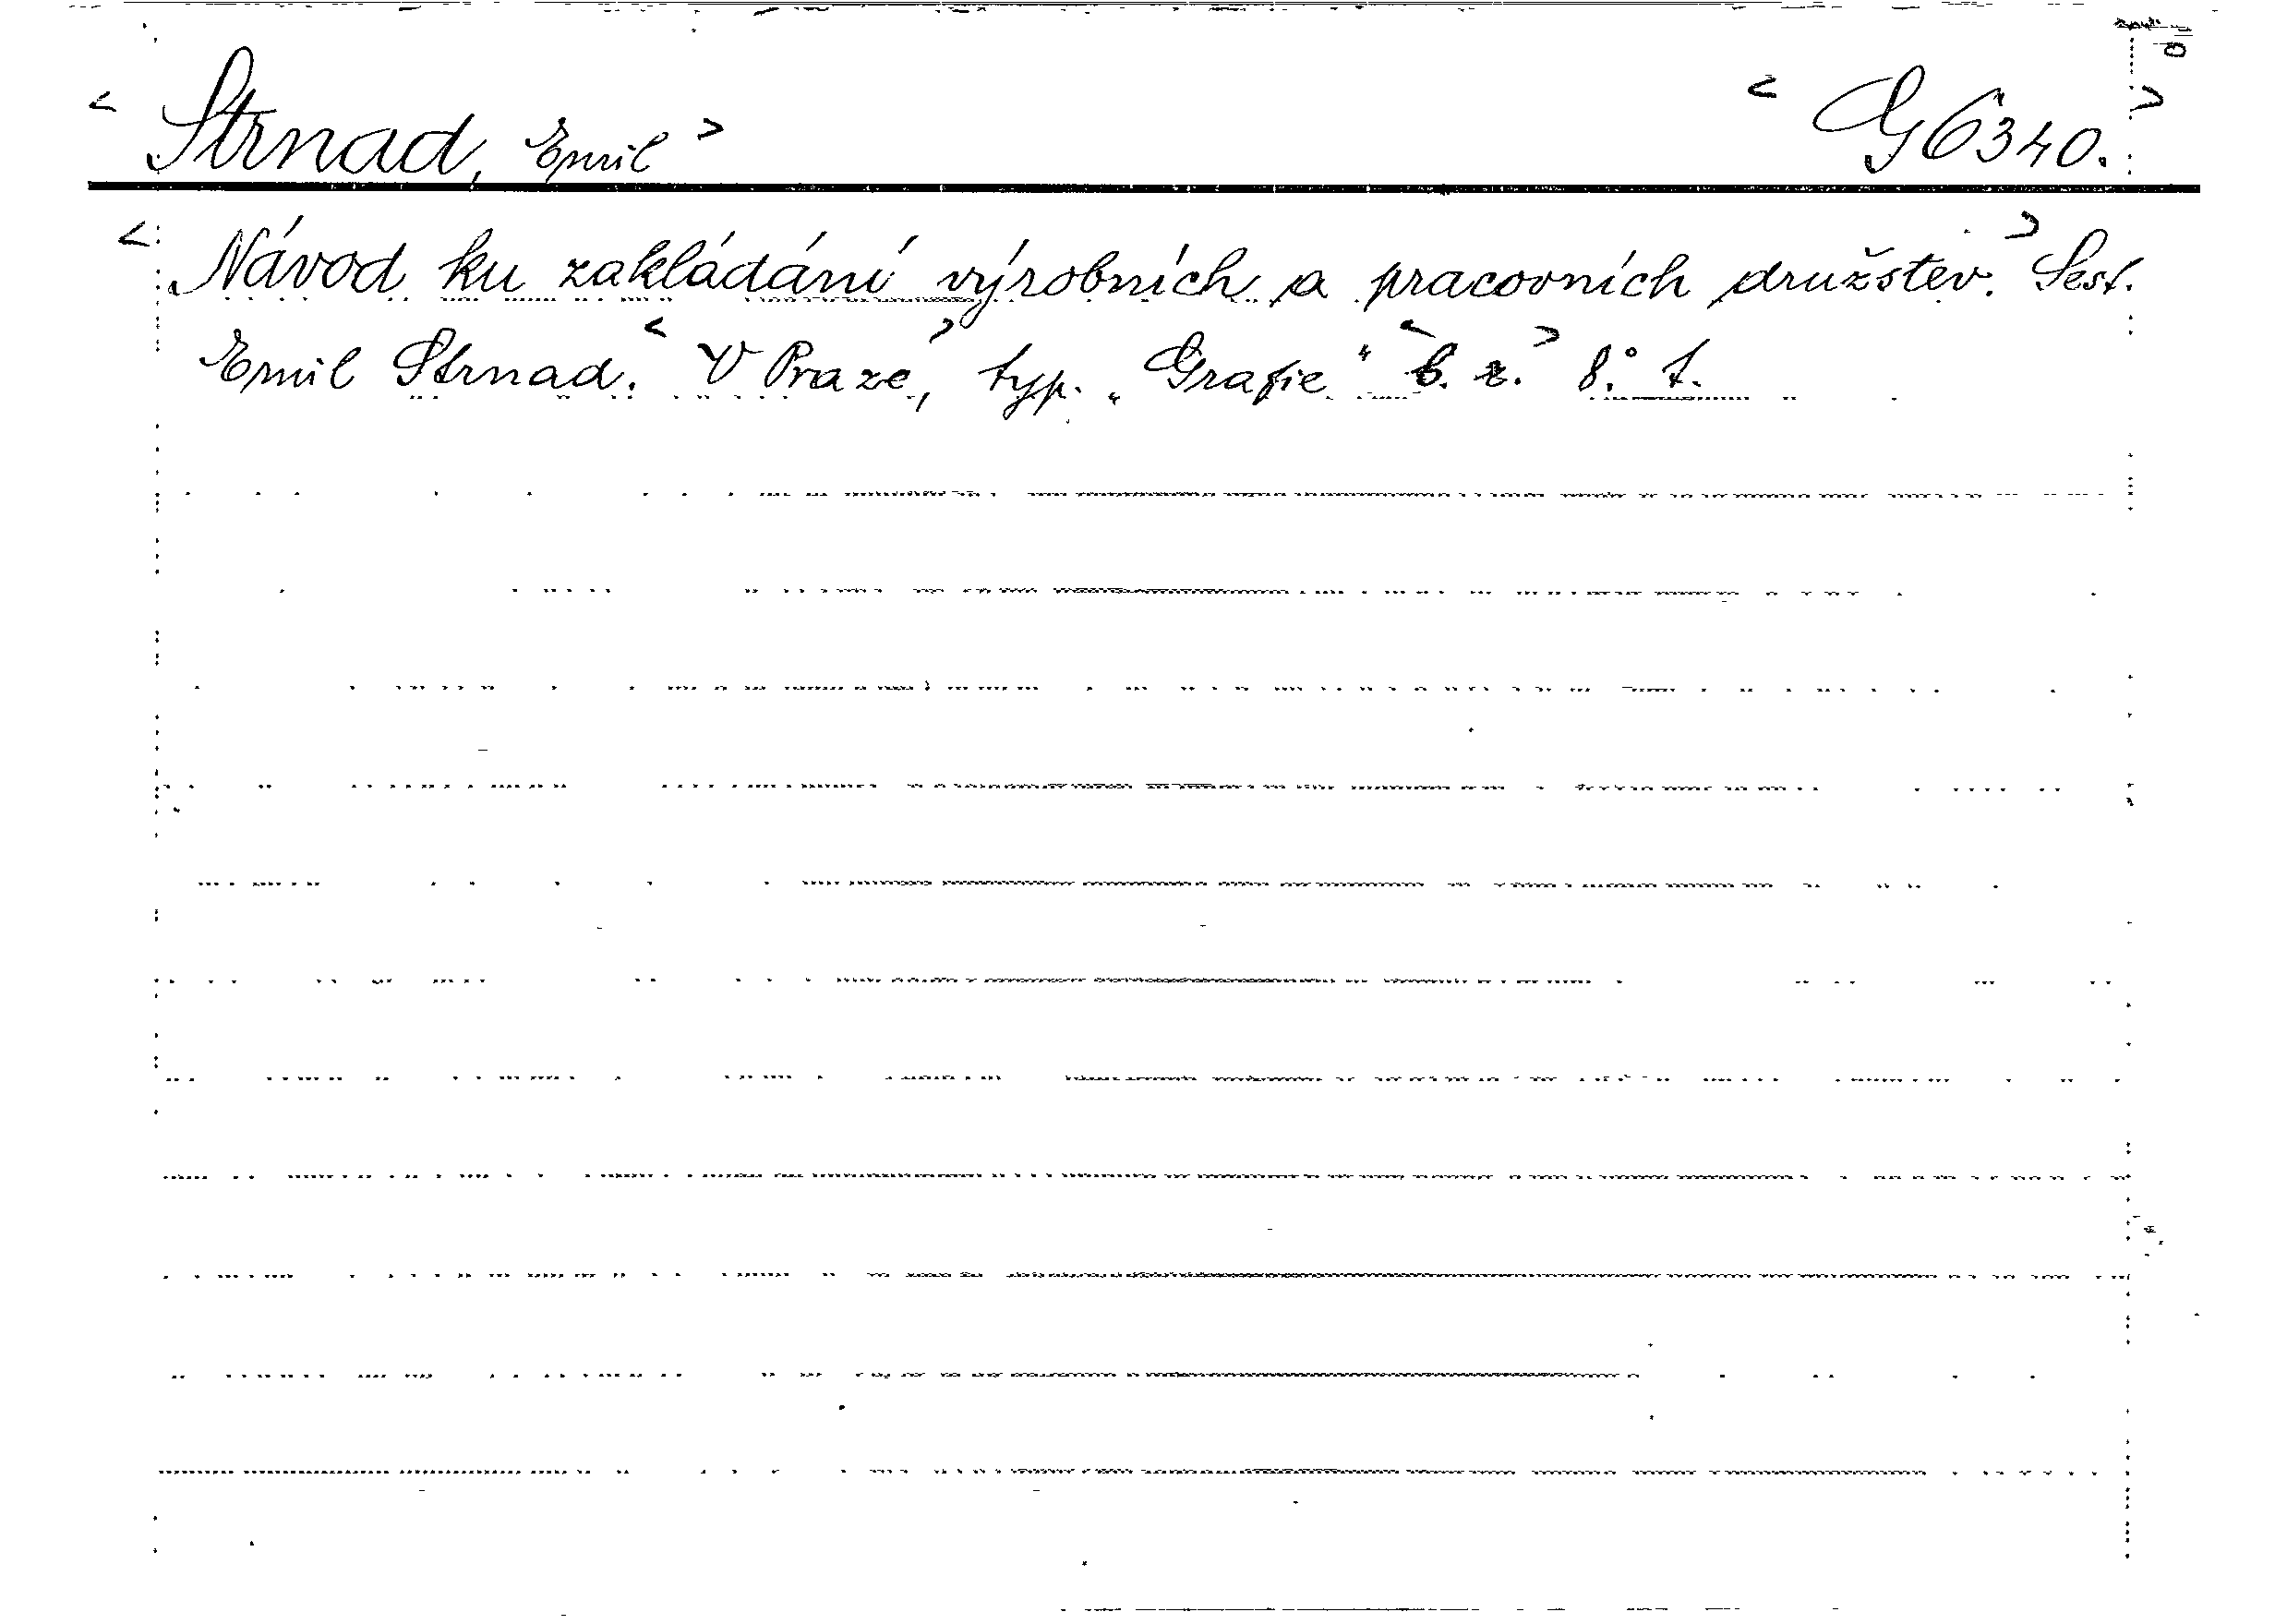 < Strnad, Emil > < G 6340. >
< Návod ku zakládání výrobních a pracovních družstev. > Sest.
Emil Strnad. < V Praze, > typ. „Grafie“ < b. r. > 8.° 1.